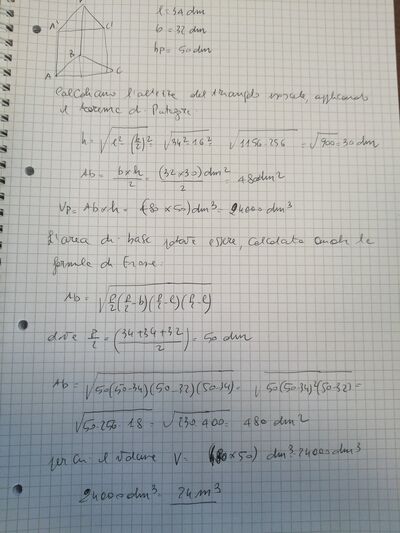 A' C'
B
A C
l = 34 dm
b = 32 dm
hp = 50 dm
Calcoliamo l'altezza del triangolo isoscele, applicando
il teorema di Pitagora
h = √(l² - (b/2)²) = √(34² - 16²) = √(1156 - 256) = √900 = 30 dm
Ab = b×h/2 = (32×30) dm²/2 = 480 dm²
Vp = Ab × h = (480 × 50) dm³ = 24000 dm³
L'area di base poteva essere, calcolata anche la
formula di Erone:
Ab = √(p/2 (p/2 - b)(p/2 - l)(p/2 - l))
dove p/2 = (34+34+32/2) = 50 dm
Ab = √(50(50-34)(50-32)(50-34)) = √(50(50-34)²(50-32)) =
√(50·250·18) = √(230·400) = 480 dm²
per cui il volume V = (480×50) dm³ = 24000 dm³
24000 dm³ = 24 m³